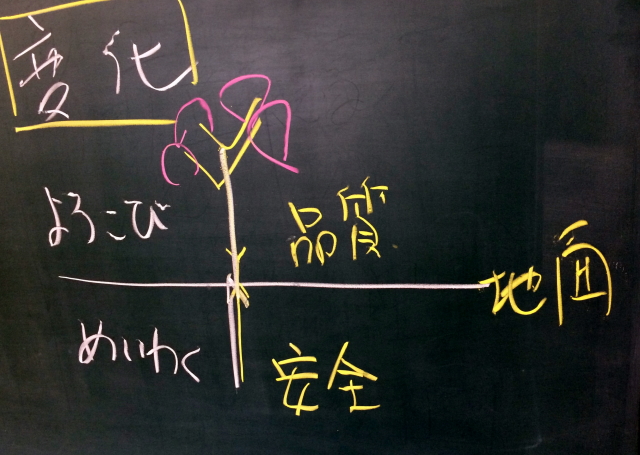 変化
よろこび 品質
地面
めいわく 安全